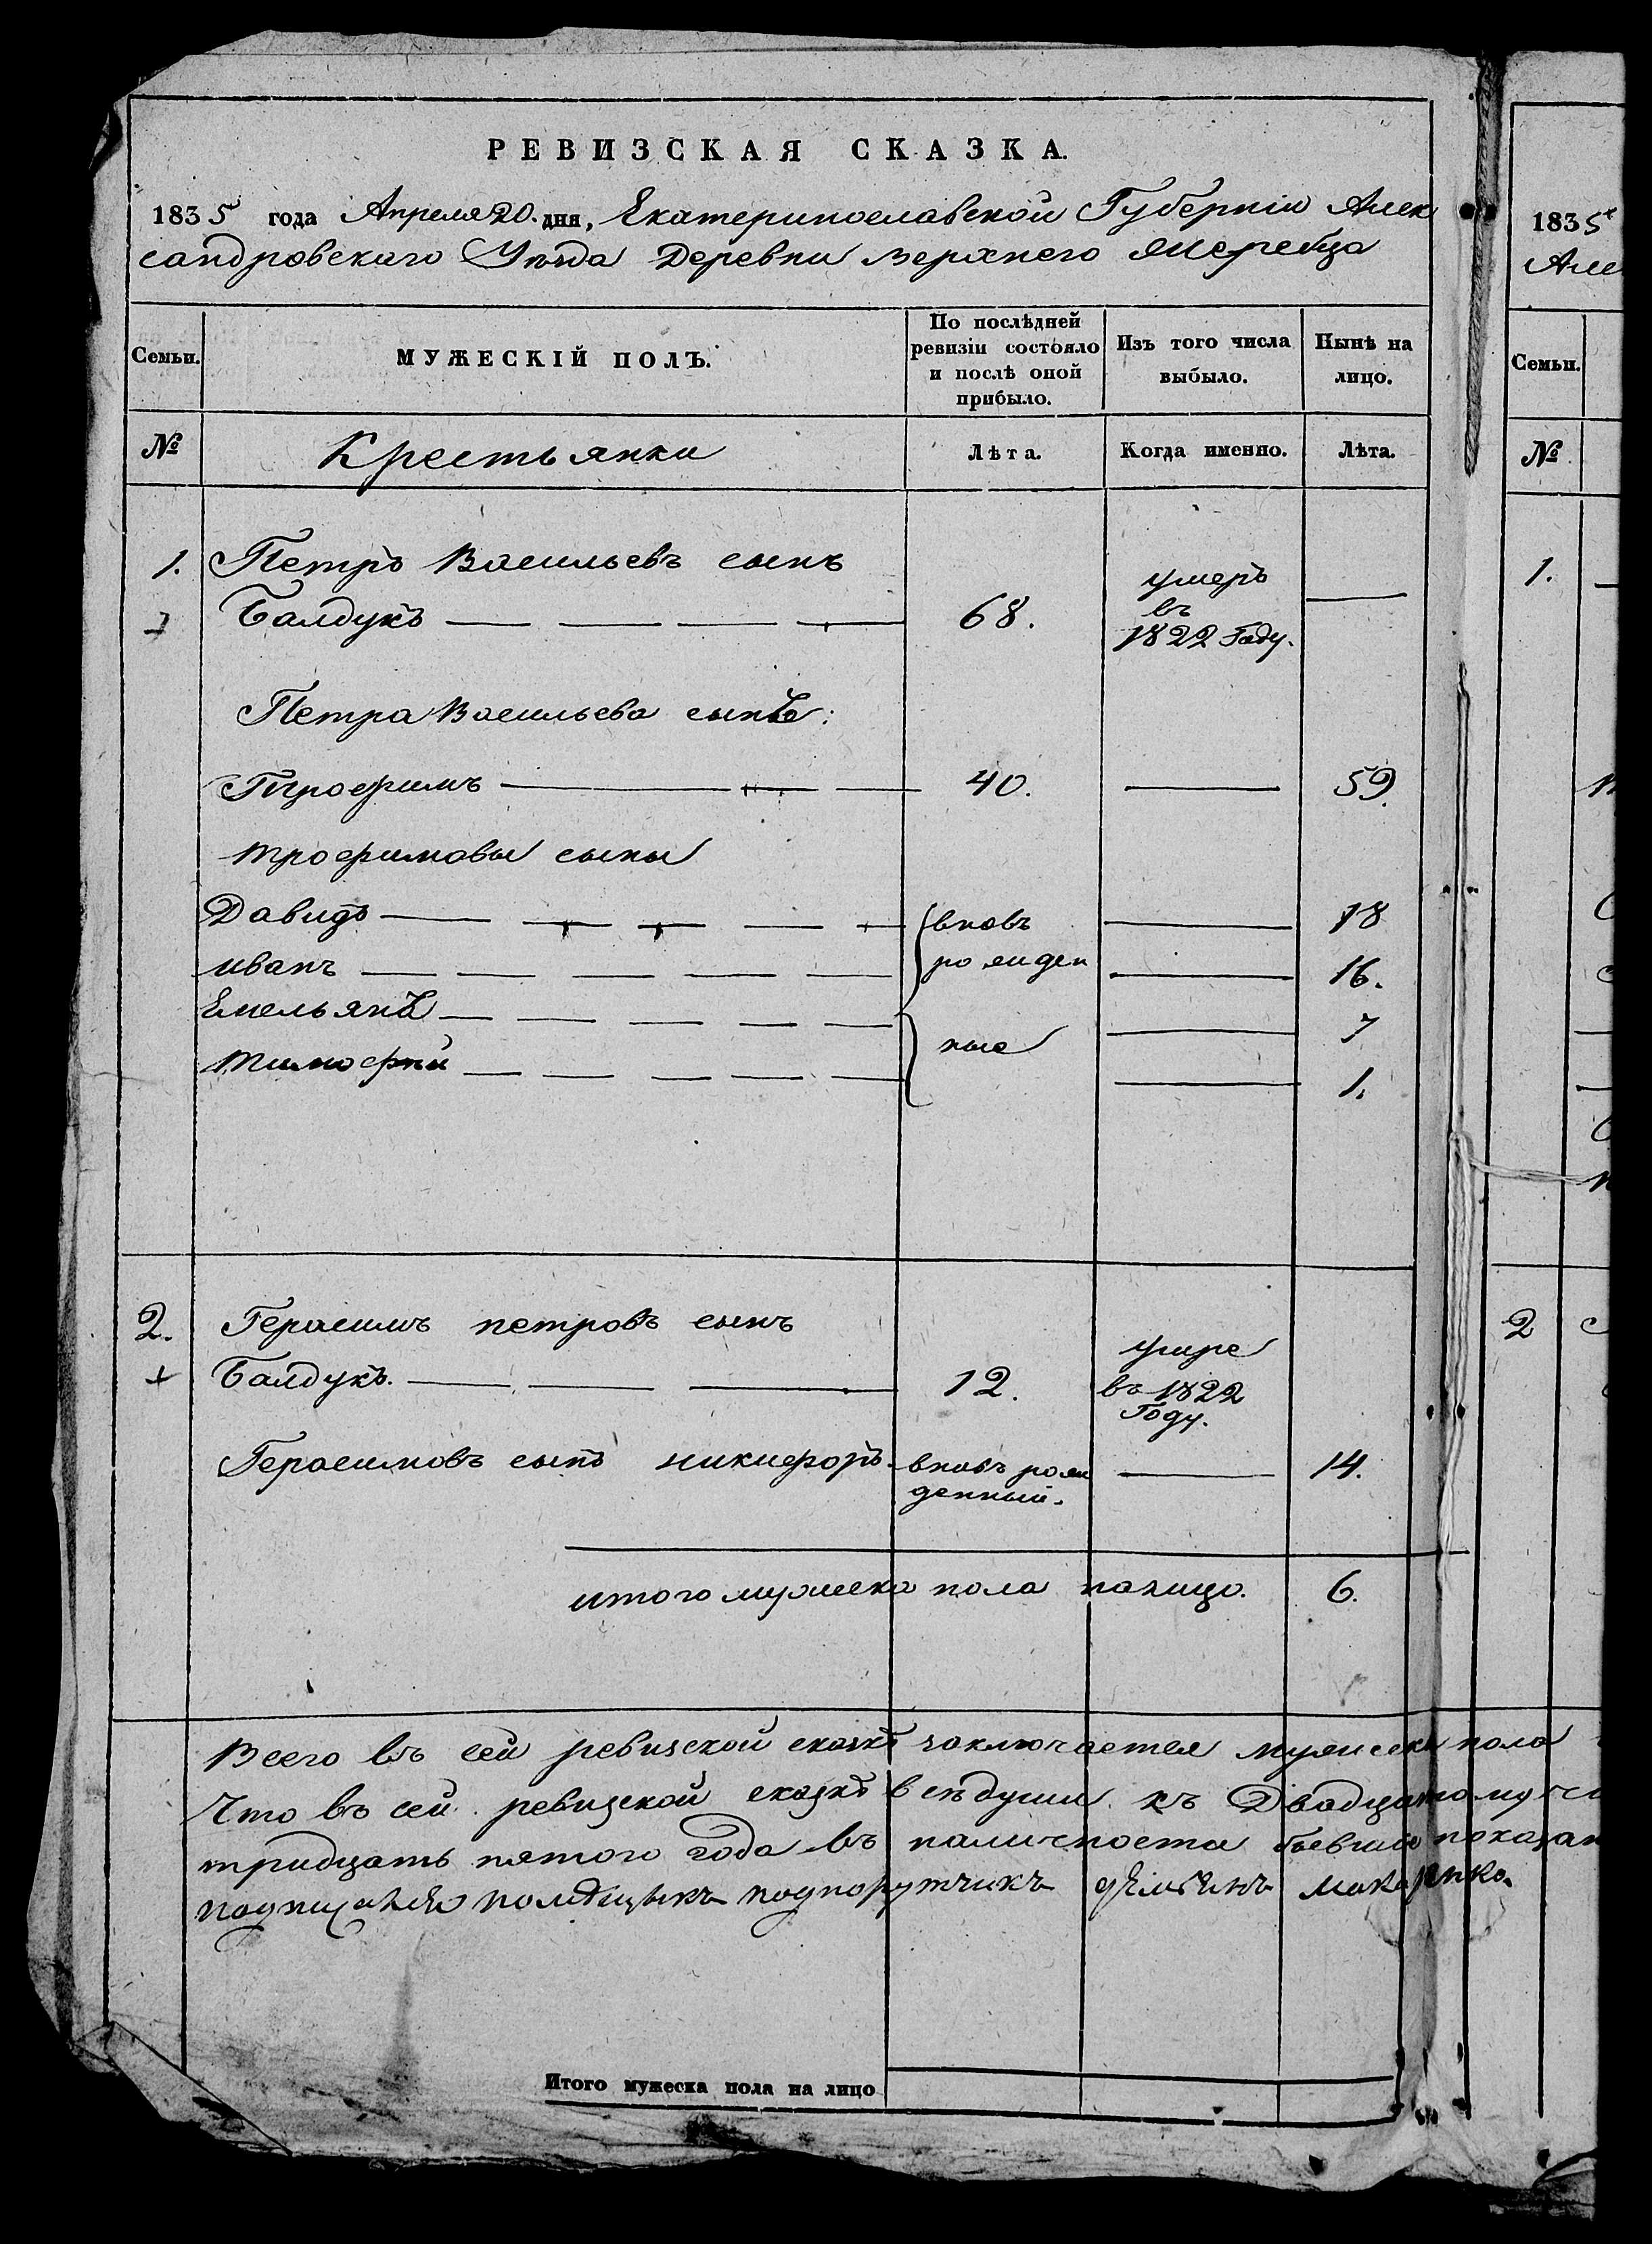 РЕВИЗСКАЯ СКАЗКА.
1835 года Апреля 20. дня, Екатеринославской Губернiи Алек
сандровскаго Уѣзда Деревни верхнего Жеребца
Семьи.
МУЖЕСКІЙ ПОЛЪ.
По послѣдней ревизіи состояло и послѣ оной прибыло.
Изъ того числа выбыло.
Нынѣ на лицо.
№
Крестьянки
Лѣта.
Когда именно.
Лѣта.
1. Петръ Васильевъ сынъ
Балдукъ 68. умеръ въ 1822 Году.
Петра Васильева сынъ:
Трофимъ 40. 59.
трофимовы сыны
Давидъ вновь 18
иванъ рожден 16.
Емельянъ ные 7
тимофѣй 1.
2. Герасимъ петровъ сынъ
Балдукъ. 12. умре въ 1822 Году.
Герасимовъ сынъ никифоръ. вновь рож 14.
денный.
итого мужеска пола налицо. 6.
Всего въ сей ревизской сказкѣ заключается мужеска пола
Что въ сей ревизской сказкѣ всѣ души къ Двадцатому чи
тридцать пятого года въ наличности бывшие показан
подпоручикъ макаренко.
Итого мужеска пола на лицо
1835
Але
Семьи.
№
1.
2